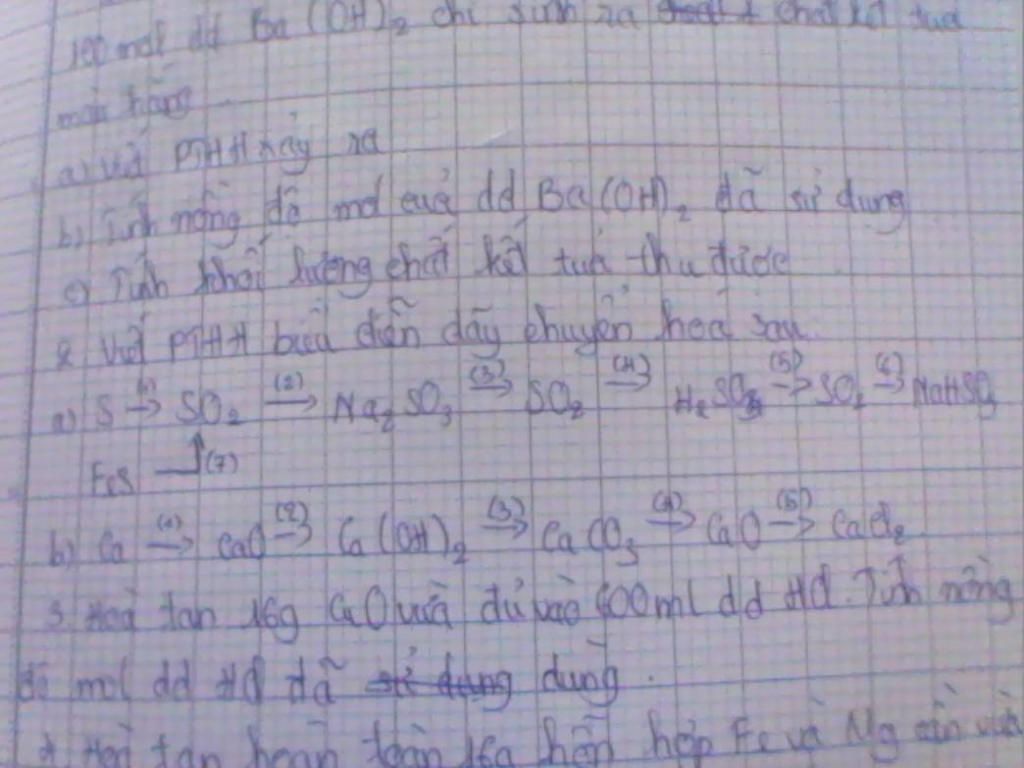 100 ml dd Ba(OH)₂ chỉ sinh ra chất kết tủa
màu trắng
a) Viết PTHH xảy ra
b) Tính nồng độ mol của dd Ba(OH)₂ đã sử dụng
c) Tính khối lượng chất kết tủa thu được
2 Viết PTHH biểu diễn dãy chuyển hoá sau
a) S → SO₂ (2)→ Na₂SO₃ (3)→ SO₂ (4)→ H₂SO₃ (5)→ SO₂ (6)→ NaHSO₃
FeS (7)
b) Ca (1)→ CaO (2)→ Ca(OH)₂ (3)→ CaCO₃ (4)→ CaO (5)→ CaCl₂
3. Hoà tan 16g vừa đủ vào 600ml dd HCl. Tính nồng
độ mol dd HCl đã dùng.
Hoà tan hoàn toàn 16g hỗn hợp Fe và Mg cần vừa